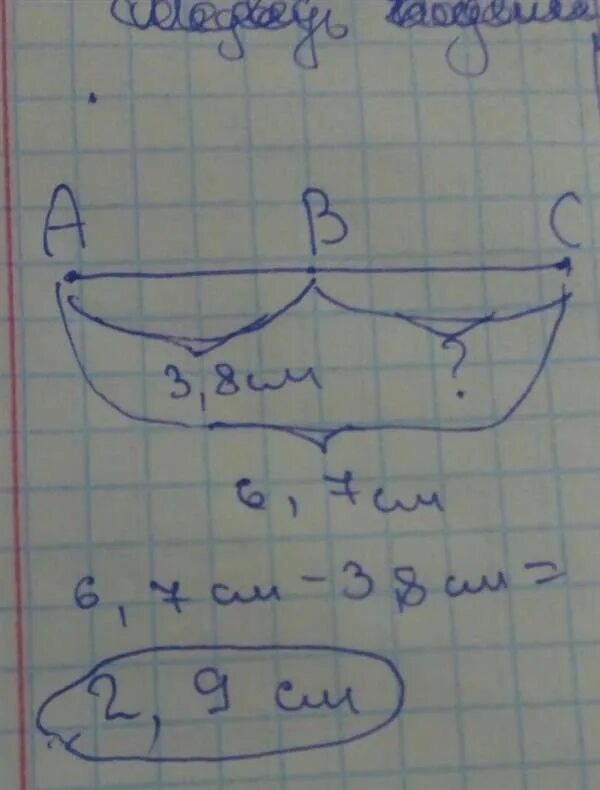 A B C
3,8 см ?
6,7 см
6,7 см - 3,8 см =
2,9 см